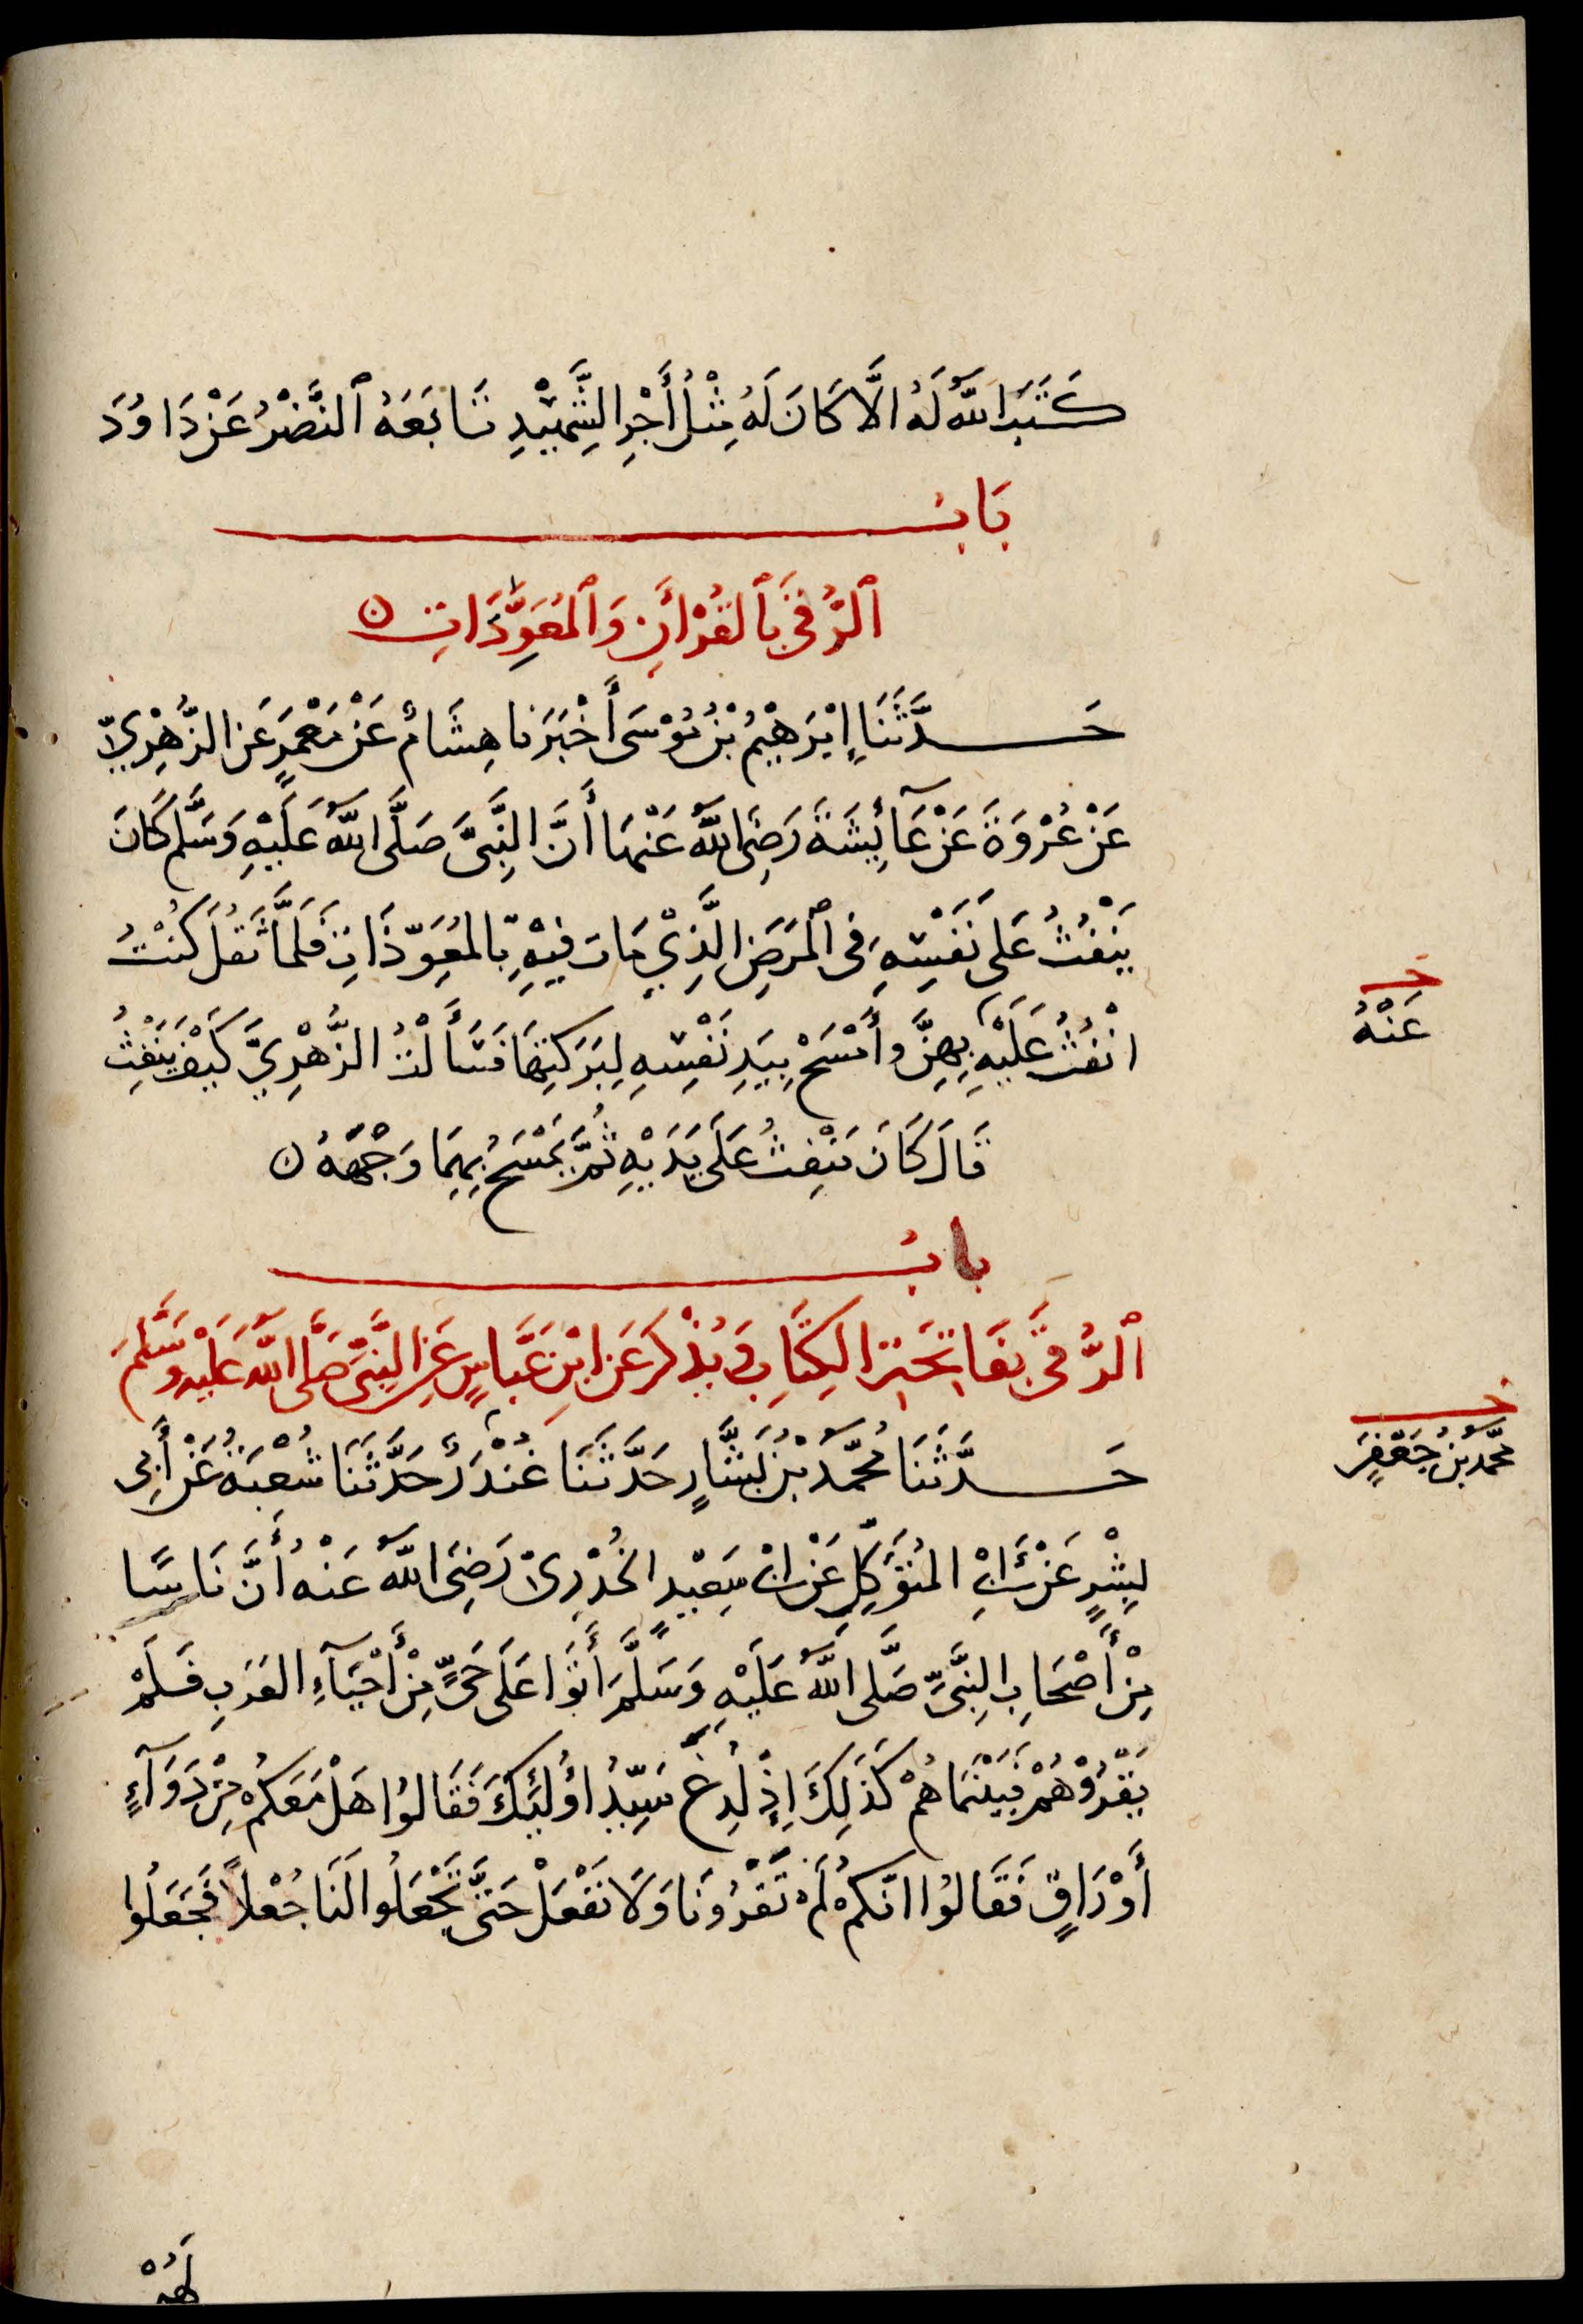 كَتَبَ اللّٰهُ لَهُ الَّا كَانَ لَهُ مِثْلُ أَجْرِ الشَّهِيْدِ تَابَعَهُ ٱلنَّضْرُ عَنْ دَاوُدَ
بَابُ
ٱلرُّقَى بِٱلقُرْأَنِ وَٱلمُعَوِّذَاتِ
حَدَّثَنَا إِبْرَهِيْمُ بْنُ مُوْسَى أَخْبَرَنَا هِشَامٌ عَنْ مَعْمَرٍ عَنِ الزُّهْرِيِّ
عَنْ عُرْوَةَ عَنْ عَآئِشَةَ رَضِيَ اللّٰهُ عَنْهَا أَنَّ النَّبِيَّ صَلَّى اللّٰهُ عَلَيْهِ وَسَلَّمَ كَانَ
يَنْفُثُ عَلَى نَفْسِهِ فِى ٱلْمَرَضِ الَّذِيْ مَاتَ فِيْهِ بِالمُعَوِّذَاتِ فَلَمَّا ثَقُلَ كُنْتُ
انْفُثُ عَلَيْهِ بِهِنَّ وأَمْسَحُ بِيَدِ نَفْسِهِ لِبَرَكَتِهَا فَسَأَلْتُ الزُّهْرِيَّ كَيْفَ يَنْفِثُ
عَنْهُ
قَالَ كَانَ يَنْفِثُ عَلَى يَدَيْهِ ثُمَّ يَمْسَحُ بِهِمَا وَجْهَهُ
بابُ
ٱلرُّقَى بِفَاتِحَةِ الكِتَابِ وَيُذْكَرُ عَنِ ابْنِ عَبَّاسٍ عَنِ النَّبِيِّ صَلَّى اللّٰهُ عَلَيْهِ وَسَلَّمَ
حَدَّثَنَا مُحَمَّدُ بْنُ بَشَّارٍ حَدَّثَنَا غُنْدَرٌ حَدَّثَنَا شُعْبَةُ عَنْ أَبِى
مُحَمَّدُ بْنُ جَعْفَرٍ
بِشْرٍ عَنْ أَبِى المُتَوَكِّلِ عَنْ أَبِى سَعِيْدٍ الخُدْرِىِّ رَضِيَ اللّٰهُ عَنْهُ أَنَّ نَاسًا
مِنْ أَصْحَابِ النَّبِيِّ صَلَّى اللّٰهُ عَلَيْهِ وَسَلَّمَ أَتَوْا عَلَى حَىٍّ مِنْ أَحْيَآءِ العَرَبِ فَلَمْ
يَقْرُوْهُمْ فَبَيْنَمَا هُمْ كَذَلِكَ إِذْ لُدِغَ سَيِّدُ اُولٰئِكَ فَقَالُوا هَلْ مَعَكُمْ مِنْ دَوَآءٍ
أَوْ رَاقٍ فَقَالُوا انَّكُمْ لَمْ تَقْرُونَا وَلَا نَفْعَلُ حَتَّى تَجْعَلُوا لَنَا جُعْلًا فَجَعَلُوا
لَهُمْ